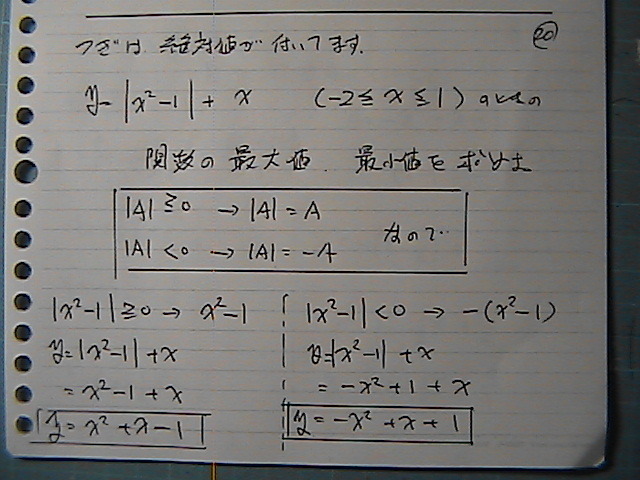 つぎは 絶対値が付いてます. ⑳
y=|x²-1|+x (-2≦x≦1) のときの
関数の最大値. 最小値を求めよ
|A|≧0 → |A|=A
|A|<0 → |A|=-A なので‥
|x²-1|≧0 → x²-1
y=|x²-1|+x
=x²-1+x
y=x²+x-1
|x²-1|<0 → -(x²-1)
y=|x²-1|+x
=-x²+1+x
y=-x²+x+1